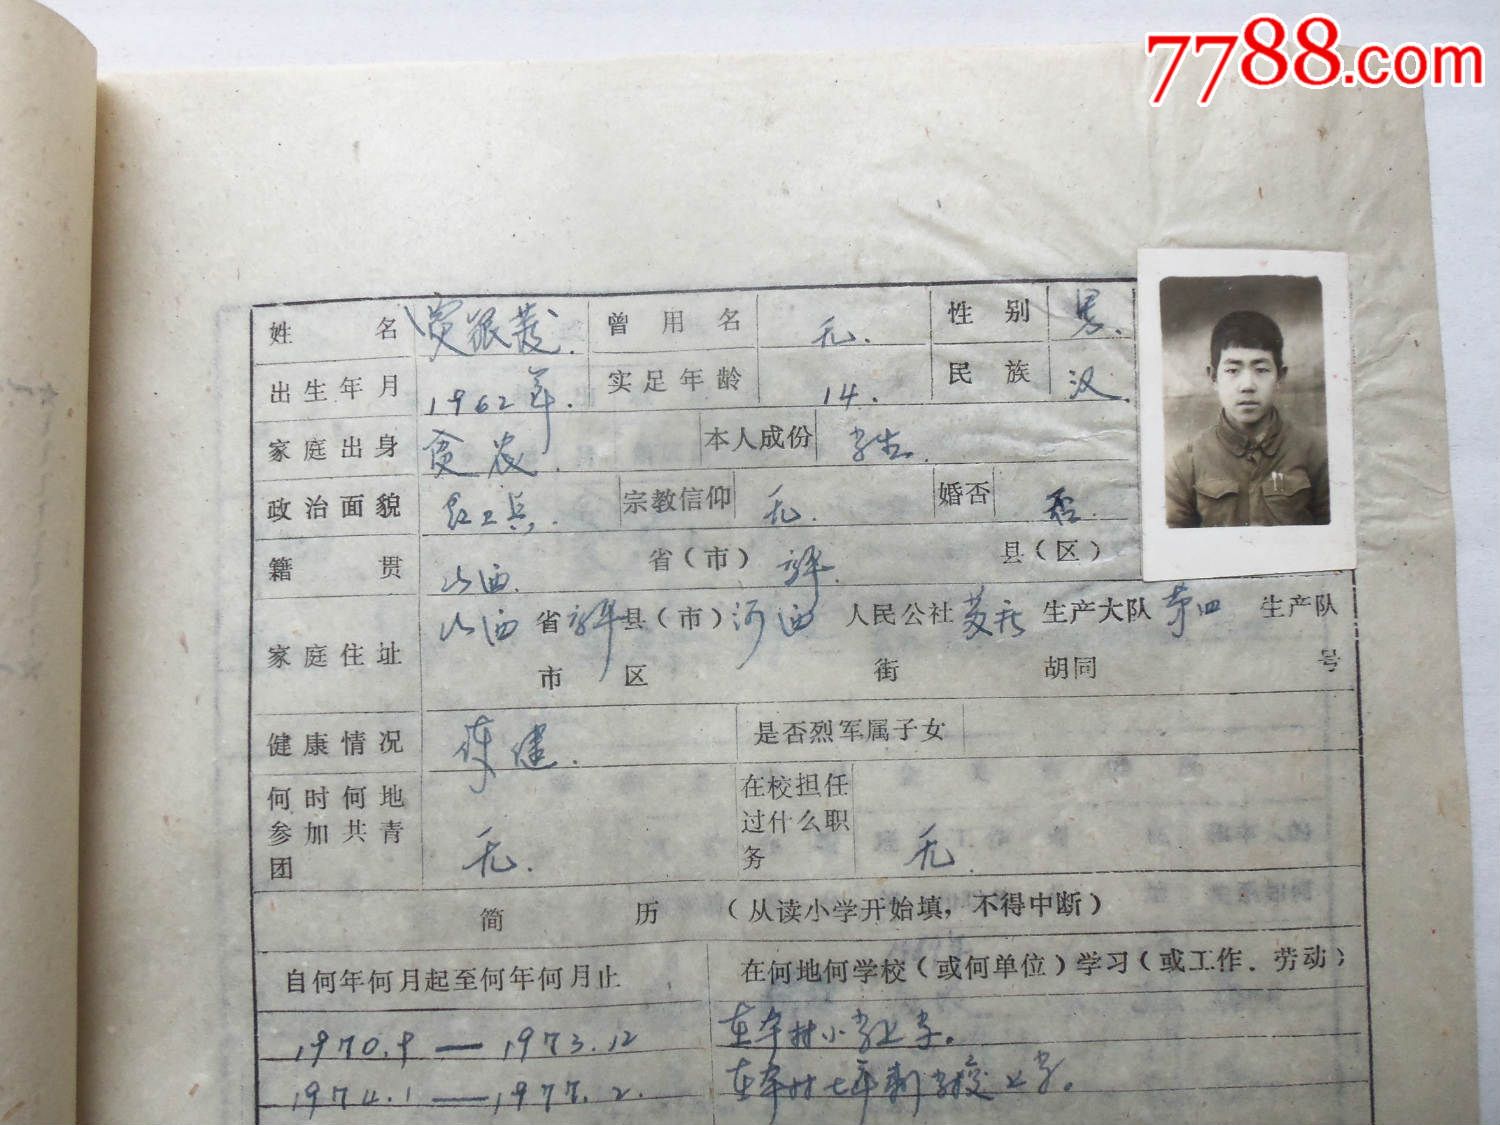 7788.com
姓名 曾用名 无. 性别 男.
出生年月 1962年. 实足年龄 14. 民族 汉.
家庭出身 贫农. 本人成份 学生.
政治面貌 红卫兵. 宗教信仰 无. 婚否 否.
籍贯 山西. 省(市) 县(区)
家庭住址 山西 省 县(市) 河西 人民公社 生产大队 第四 生产队
市 区 街 胡同 号
健康情况 健. 是否烈军属子女
何时何地参加共青团 无. 在校担任过什么职务 无.
简历 (从读小学开始填,不得中断)
自何年何月起至何年何月止 在何地何学校(或何单位)学习(或工作.劳动)
1970.9 — 1973.12 在本村小学上学.
1974.1 — 1977.2. 在本村七年制学校上学.